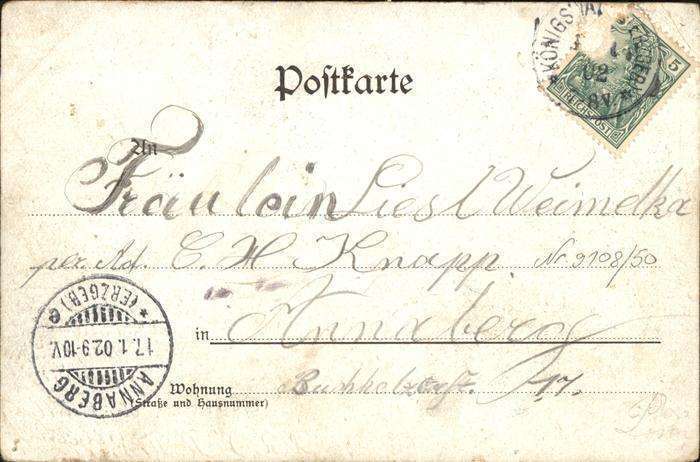 Postkarte
* KÖNIGSWAL (ERZGEB) *
02
8V
5
REICHSPOST
An
Fräulein Liesl Weimelka
per Ad. C. H. Knapp Nr 9108/50
in Annaberg
Wohnung Buchholzerstr. 17.
(Straße und Hausnummer)
ANNABERG
17.1.02.9-10V.
* (ERZGEB.) e